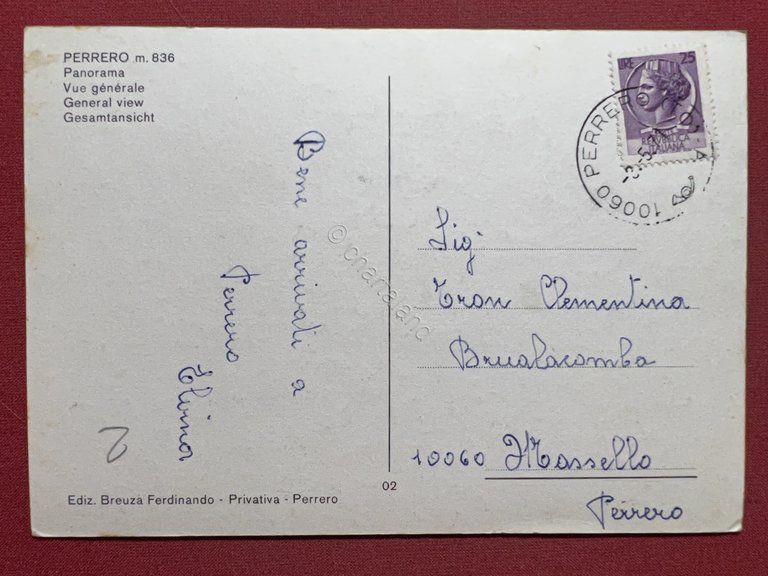 PERRERO m. 836
Panorama
Vue générale
General view
Gesamtansicht
Bene arrivati a
Perrero
Elvina
Ediz. Breuza Ferdinando - Privativa - Perrero
02
LIRE 25
REPVBBLICA
ITALIANA
10060 PERRERO
Sig.
Tron Clementina
Brualacomba
10060 Massello
Perrero
© chartaland